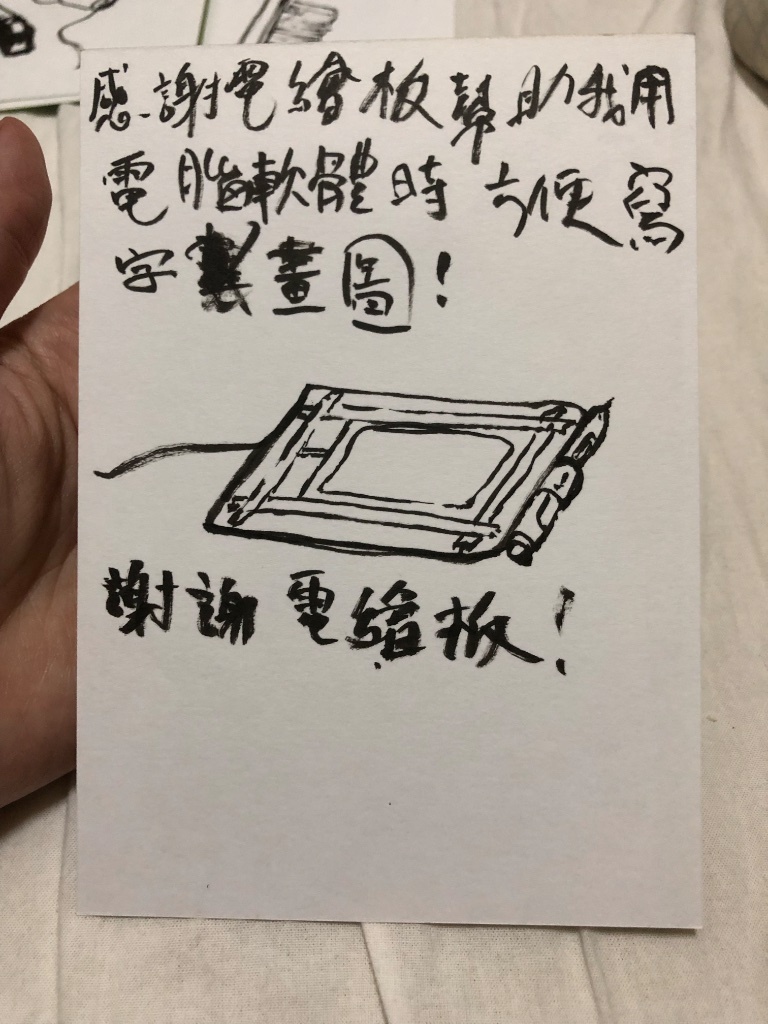 感謝電繪板幫助我用
電腦軟體時方便寫
字畫圖!
謝謝電繪板!